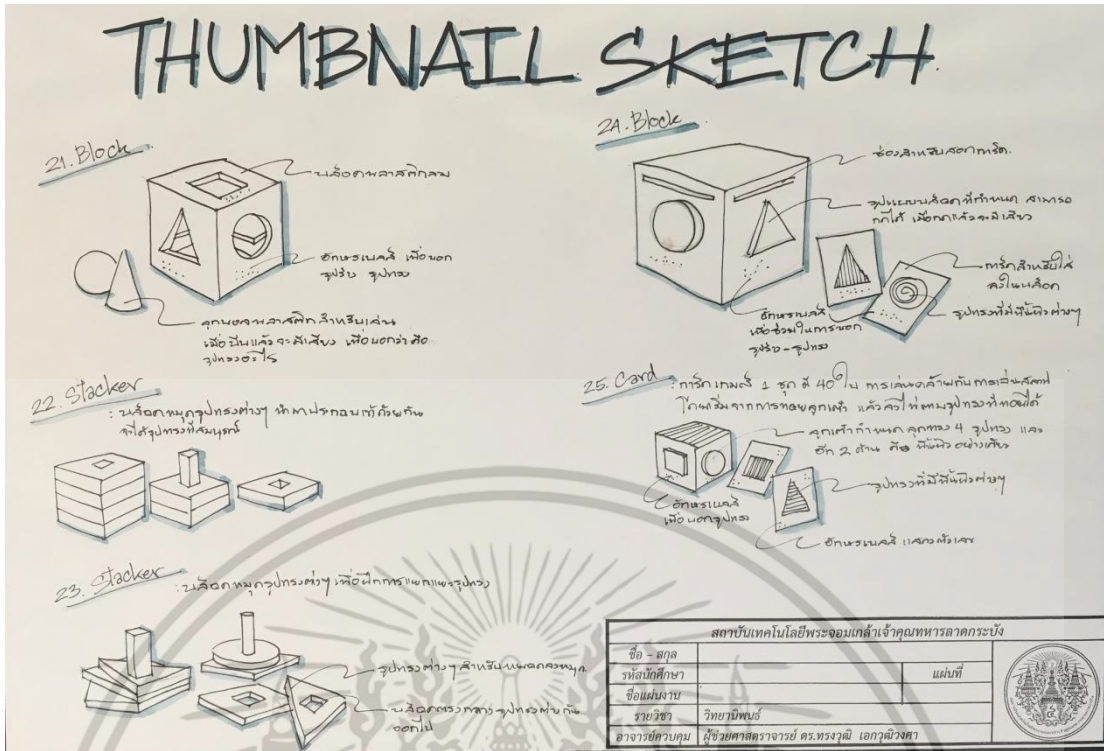 THUMBNAIL SKETCH
21. Block
บล็อคพลาสติกลม
อักษรเบลล์ เพื่อบอก
รูปร่าง รูปทรง
ลูกบอลพลาสติกสำหรับเล่น
เมื่อบีบแล้วจะมีเสียง เพื่อบอกว่าคือ
รูปทรงอะไร
22. Stacker
: บล็อคหมุดรูปทรงต่างๆ นำมาประกอบเข้าด้วยกัน
จะได้รูปทรงที่สมบูรณ์
23. Stacker
: บล็อคหมุดรูปทรงต่างๆ เพื่อฝึกการแยกแยะรูปทรง
รูปทรงต่างๆ สำหรับหยอดลงหมุด
บล็อคตรงกลางรูปทรงต่างกัน
ออกไป
24. Block
ช่องสำหรับสอดการ์ด
รูปแบบบล็อคที่กำหนด สามารถ
กดได้ เมื่อกดแล้วจะมีเสียง
การ์ดสำหรับใส่
ลงในบล็อค
รูปทรงที่มีพื้นผิวต่างๆ
อักษรเบลล์
เพื่อช่วยในการบอก
รูปร่าง-รูปทรง
25. Card
: การ์ดเกมส์ 1 ชุด มี 40 ใบ การเล่นคล้ายกับการเล่นสลาฟ
โดยเริ่มจากการทอยลูกเต๋า แล้วลงไพ่ตามรูปทรงที่ทอยได้
ลูกเต๋ากำหนด ลูกทรง 4 รูปทรง และ
อีก 2 ด้าน คือ พื้นผิวอย่างเดียว
รูปทรงที่มีพื้นผิวต่างๆ
อักษรเบลล์
เพื่อบอกรูปทรง
อักษรเบลล์ แสดงตัวเลข
สถาบันเทคโนโลยีพระจอมเกล้าเจ้าคุณทหารลาดกระบัง
ชื่อ - สกุล
รหัสนักศึกษา
แผ่นที่
ชื่อแผ่นงาน
รายวิชา วิทยานิพนธ์
อาจารย์ควบคุม ผู้ช่วยศาสตราจารย์ ดร.ทรงวุฒิ เอกวุฒิวงศา